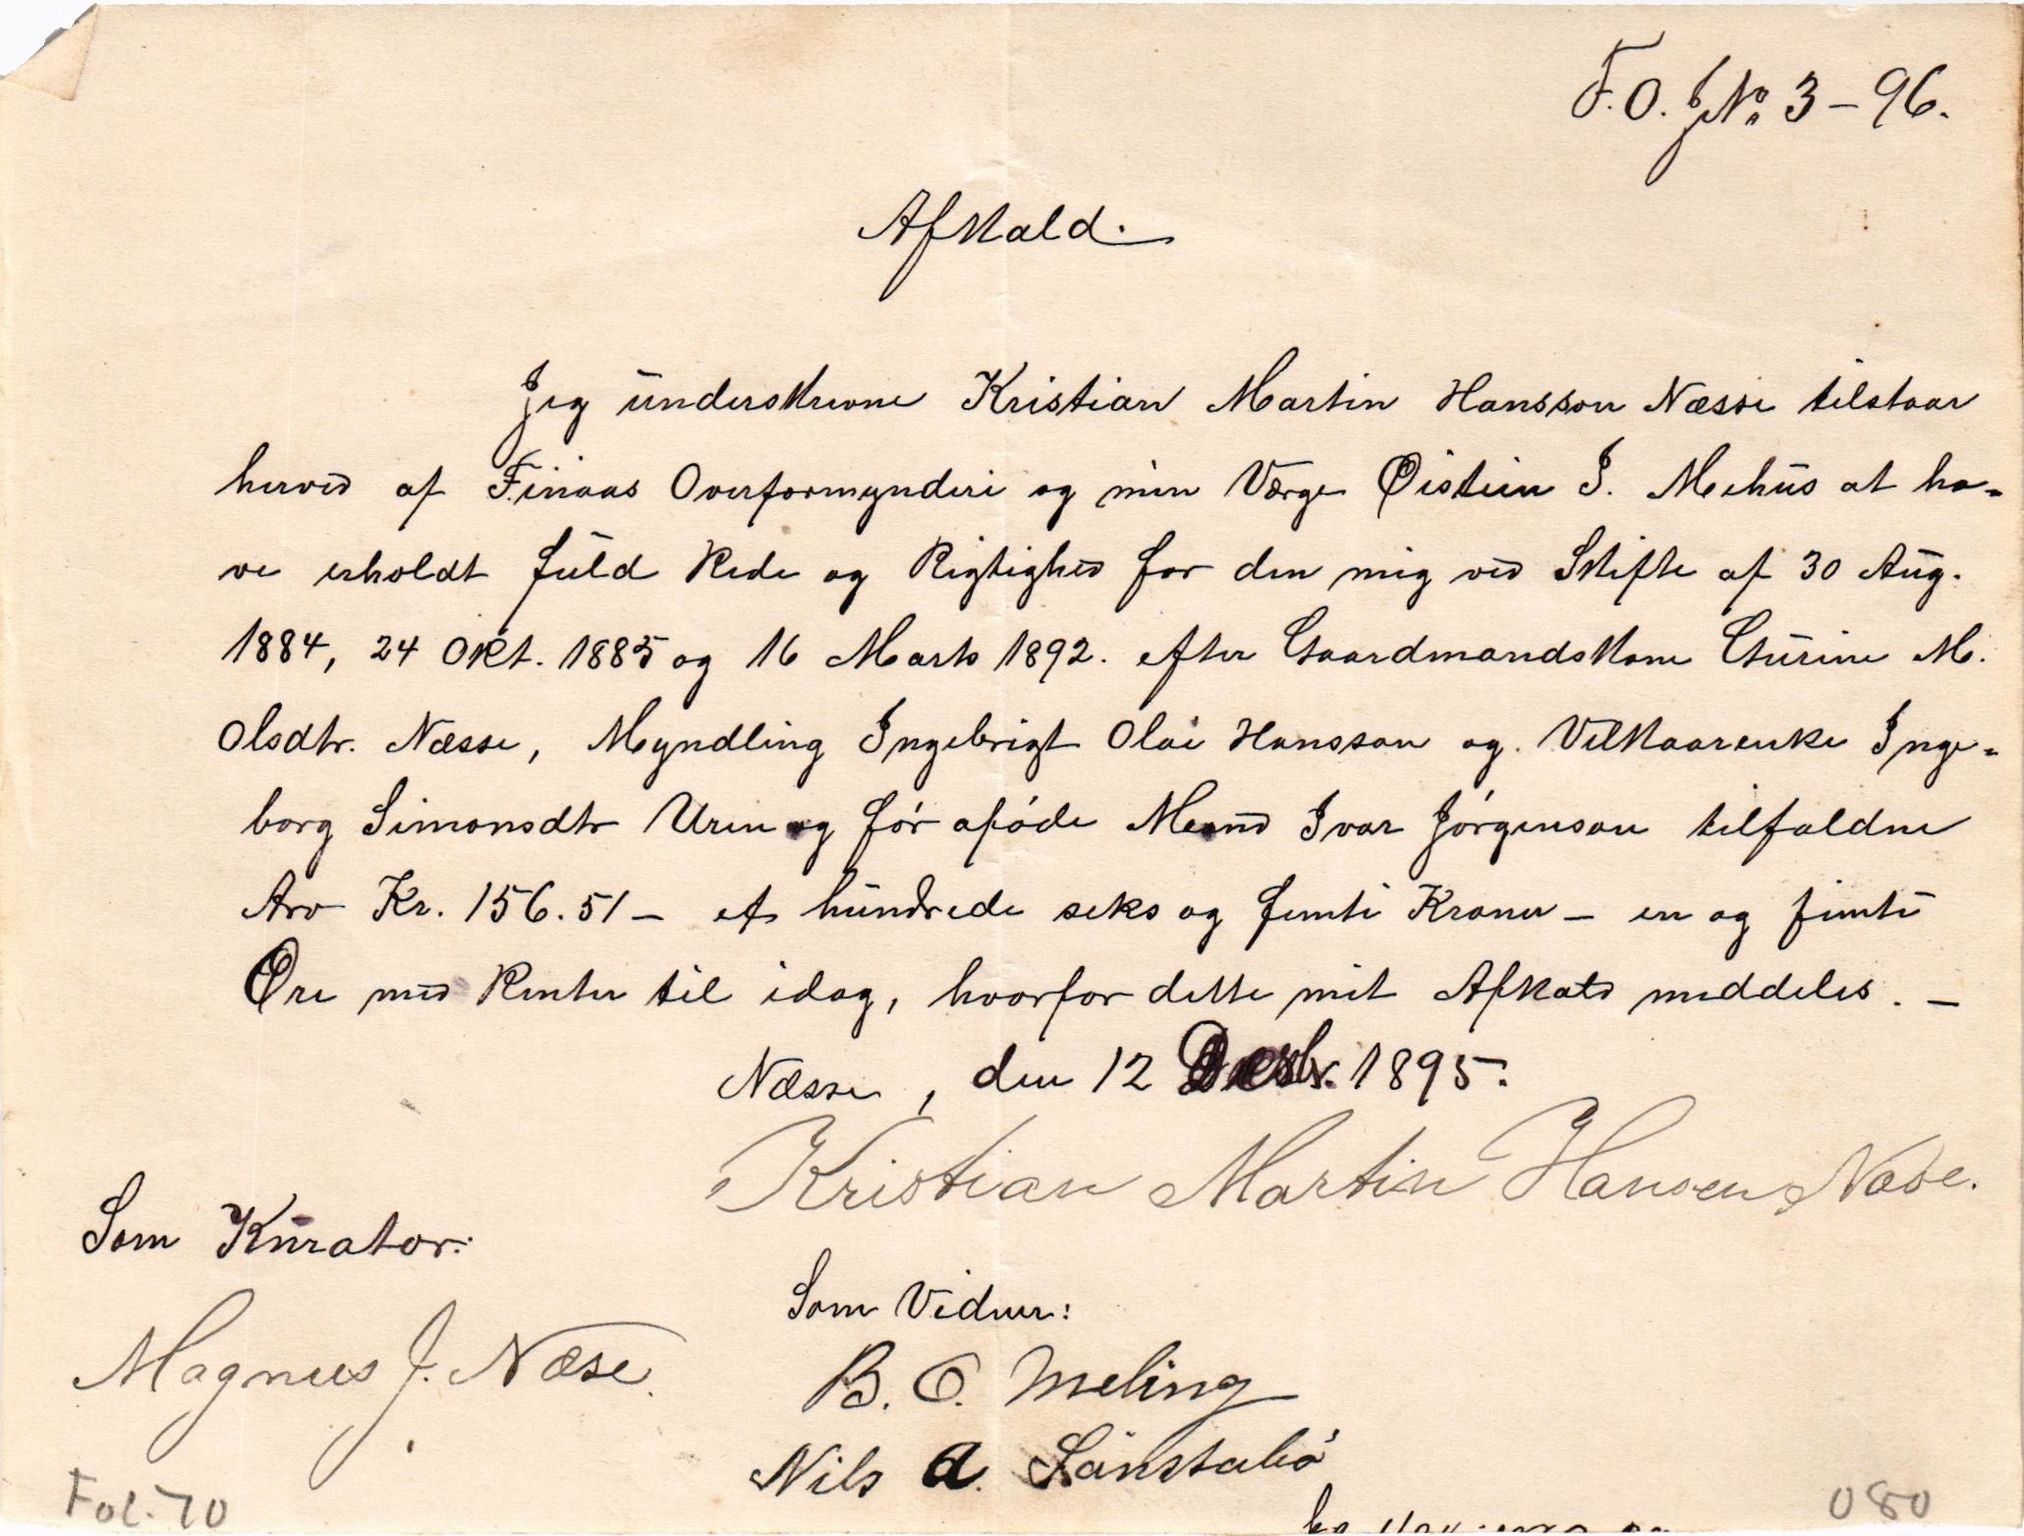 F. O. J No 3 – 96.
Afkald.
Jeg underskrevne Kristian Martin Hansson Næsse tilstaar
herved af Finaas Overformynderi og min Værge Øistein J. Mehus at ha-
ve erholdt fuld Rede og Rigtighed for den mig ved Skifte af 30 Aug.
1884, 24 Okt. 1885 og 16 Marts 1892. efter Gaardmandskone Gurine M.
Olsdtr. Næsse, Myndling Ingebrigt Olai Hansson og. Vilkaarenke Inge-
borg Simonsdtr Uren og før aføde Mand Ivar Jørgenson tilfaldne
Arv Kr. 156.51 – et hundrede seks og femti Kroner – en og femti
Øre med Renter til idag, hvorfor dette mit Afkald meddeles. –
Næsse, den 12 Desbr. 1895.
Kristian Martin Hansen Næse.
Som Kurator:
Magnus J. Næse.
Som Vidner:
B. O. Meling
Nils A.
Fol. 70
080